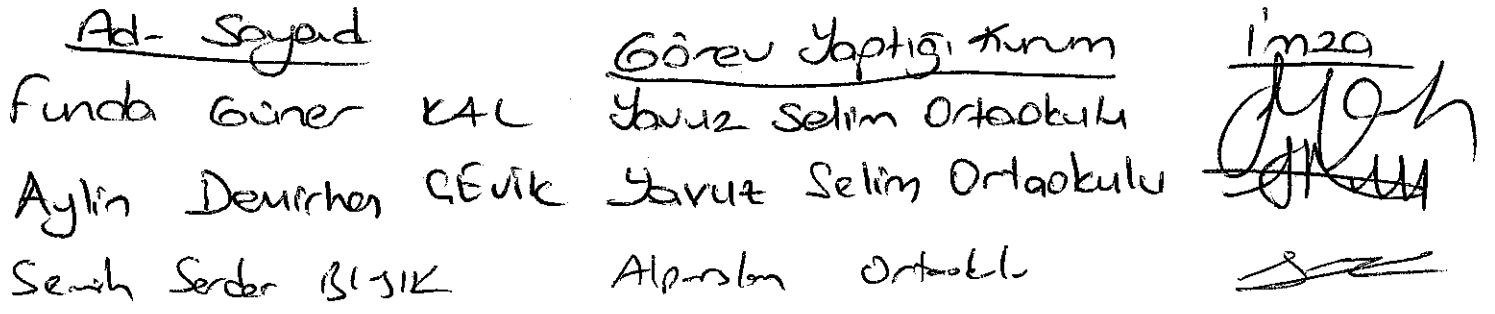 Ad- Soyad Görev Yaptığı Kurum İmza
Funda Güner KAL Yavuz Selim Ortaokulu
Aylin Demirhan ÇEVİK Yavuz Selim Ortaokulu
Semih Serdar Alparslan Ortaokulu